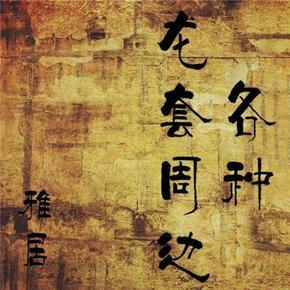 各种
龙套周边
雅居